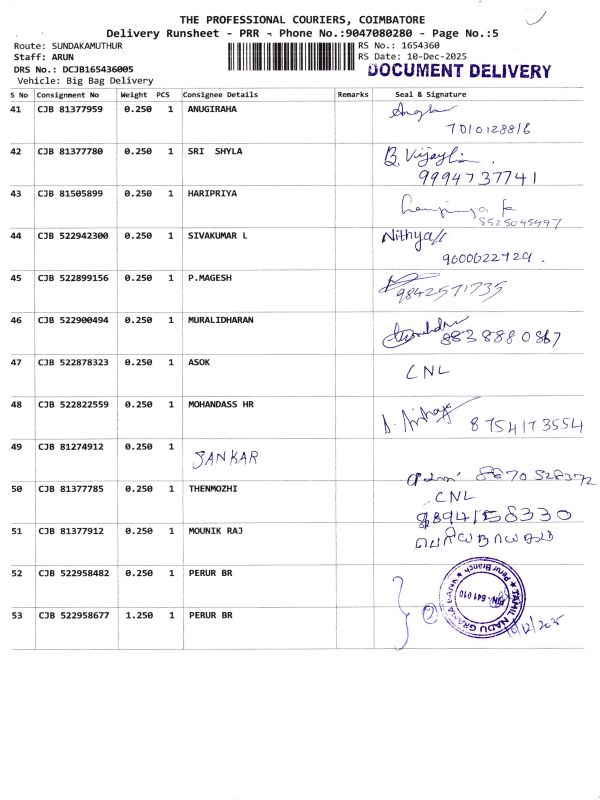 THE PROFESSIONAL COURIERS, COIMBATORE
Delivery Runsheet - PRR - Phone No.:9047080280 - Page No.:5
Route: SUNDAKAMUTHUR
RS No.: 1654360
Staff: ARUN
RS Date: 10-Dec-2025
DRS No.: DCJB165436005
DOCUMENT DELIVERY
Vehicle: Big Bag Delivery
S No Consignment No Weight PCS Consignee Details Remarks Seal & Signature
41 CJB 81377959 0.250 1 ANUGIRAHA
7010128816
42 CJB 81377780 0.250 1 SRI SHYLA B. Vijayli
9994737741
43 CJB 81505899 0.250 1 HARIPRIYA
8525045497
44 CJB 522942300 0.250 1 SIVAKUMAR L Nithya
9600622729.
45 CJB 522899156 0.250 1 P.MAGESH
9842571735
46 CJB 522900494 0.250 1 MURALIDHARAN
8838880867
47 CJB 522878323 0.250 1 ASOK CNL
48 CJB 522822559 0.250 1 MOHANDASS HR
8754173554
49 CJB 81274912 0.250 1 SANKAR
8870528372
50 CJB 81377785 0.250 1 THENMOZHI CNL
51 CJB 81377912 0.250 1 MOUNIK RAJ
52 CJB 522958482 0.250 1 PERUR BR
53 CJB 522958677 1.250 1 PERUR BR
TAMIL NADU GRAMA BANK ★ Perur Branch ★
PIN - 641 010
10/12/2025